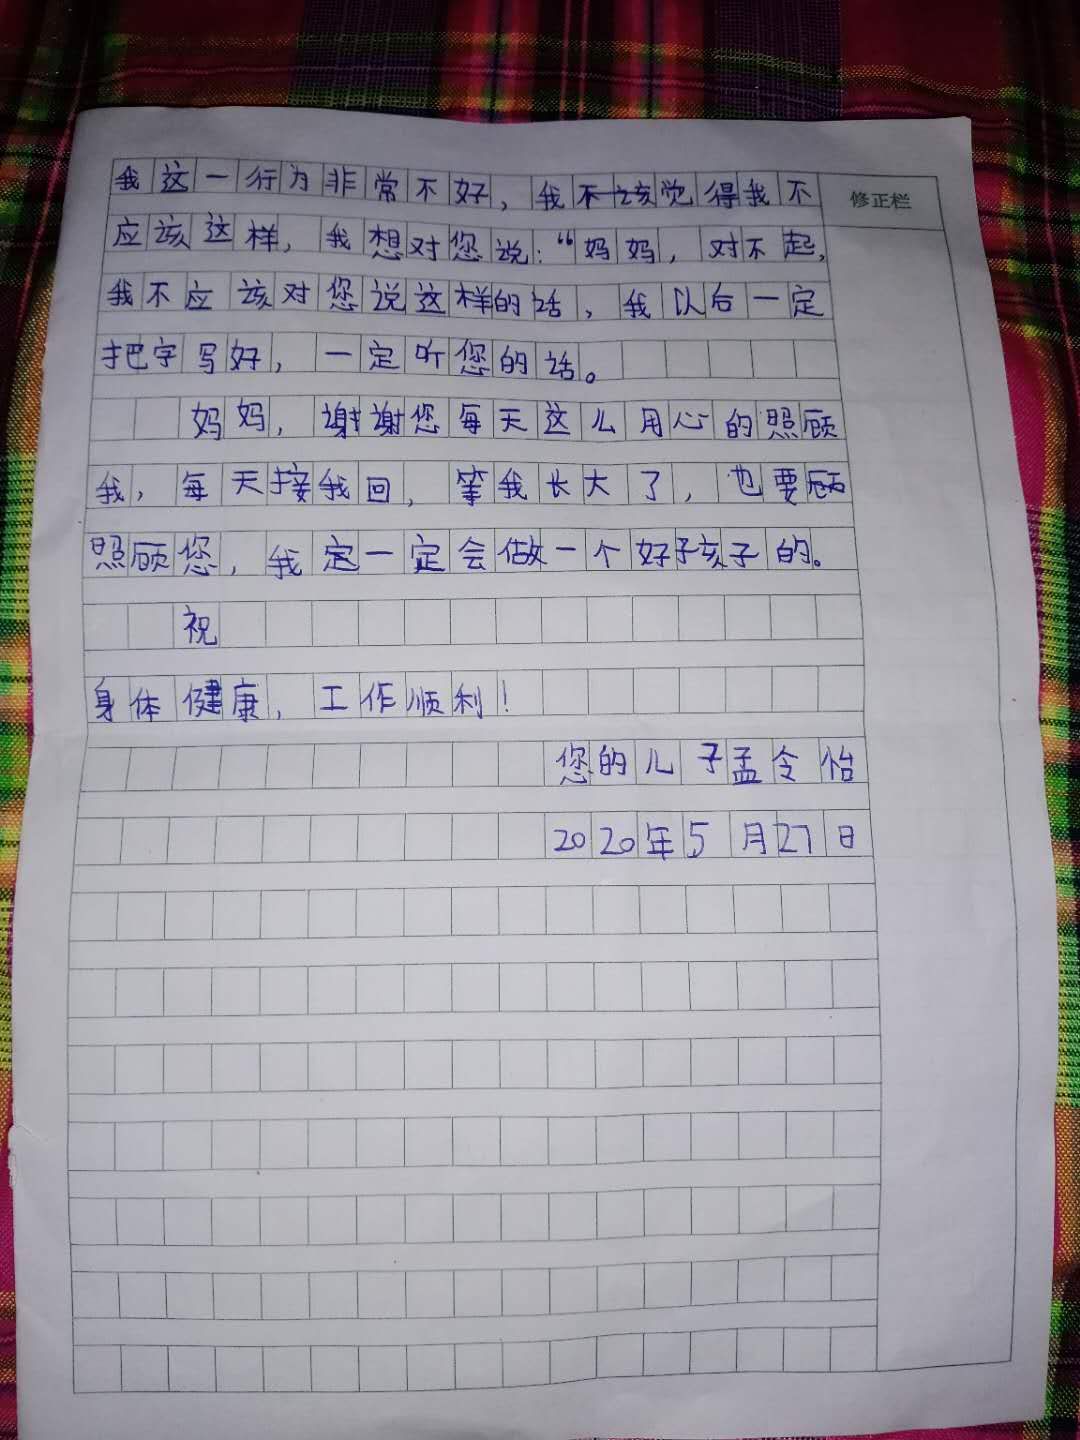 我这一行为非常不好，我不该觉得我不
修正栏
应该这样，我想对您说：“妈妈，对不起，
我不应该对您说这样的话，我以后一定
把字写好，一定听您的话。
妈妈，谢谢您每天这么用心的照顾
我，每天接我回，等我长大了，也要顾
照顾您，我定一定会做一个好子孩子的。
祝
身体健康，工作顺利！
您的儿子孟令怡
2020年5月27日